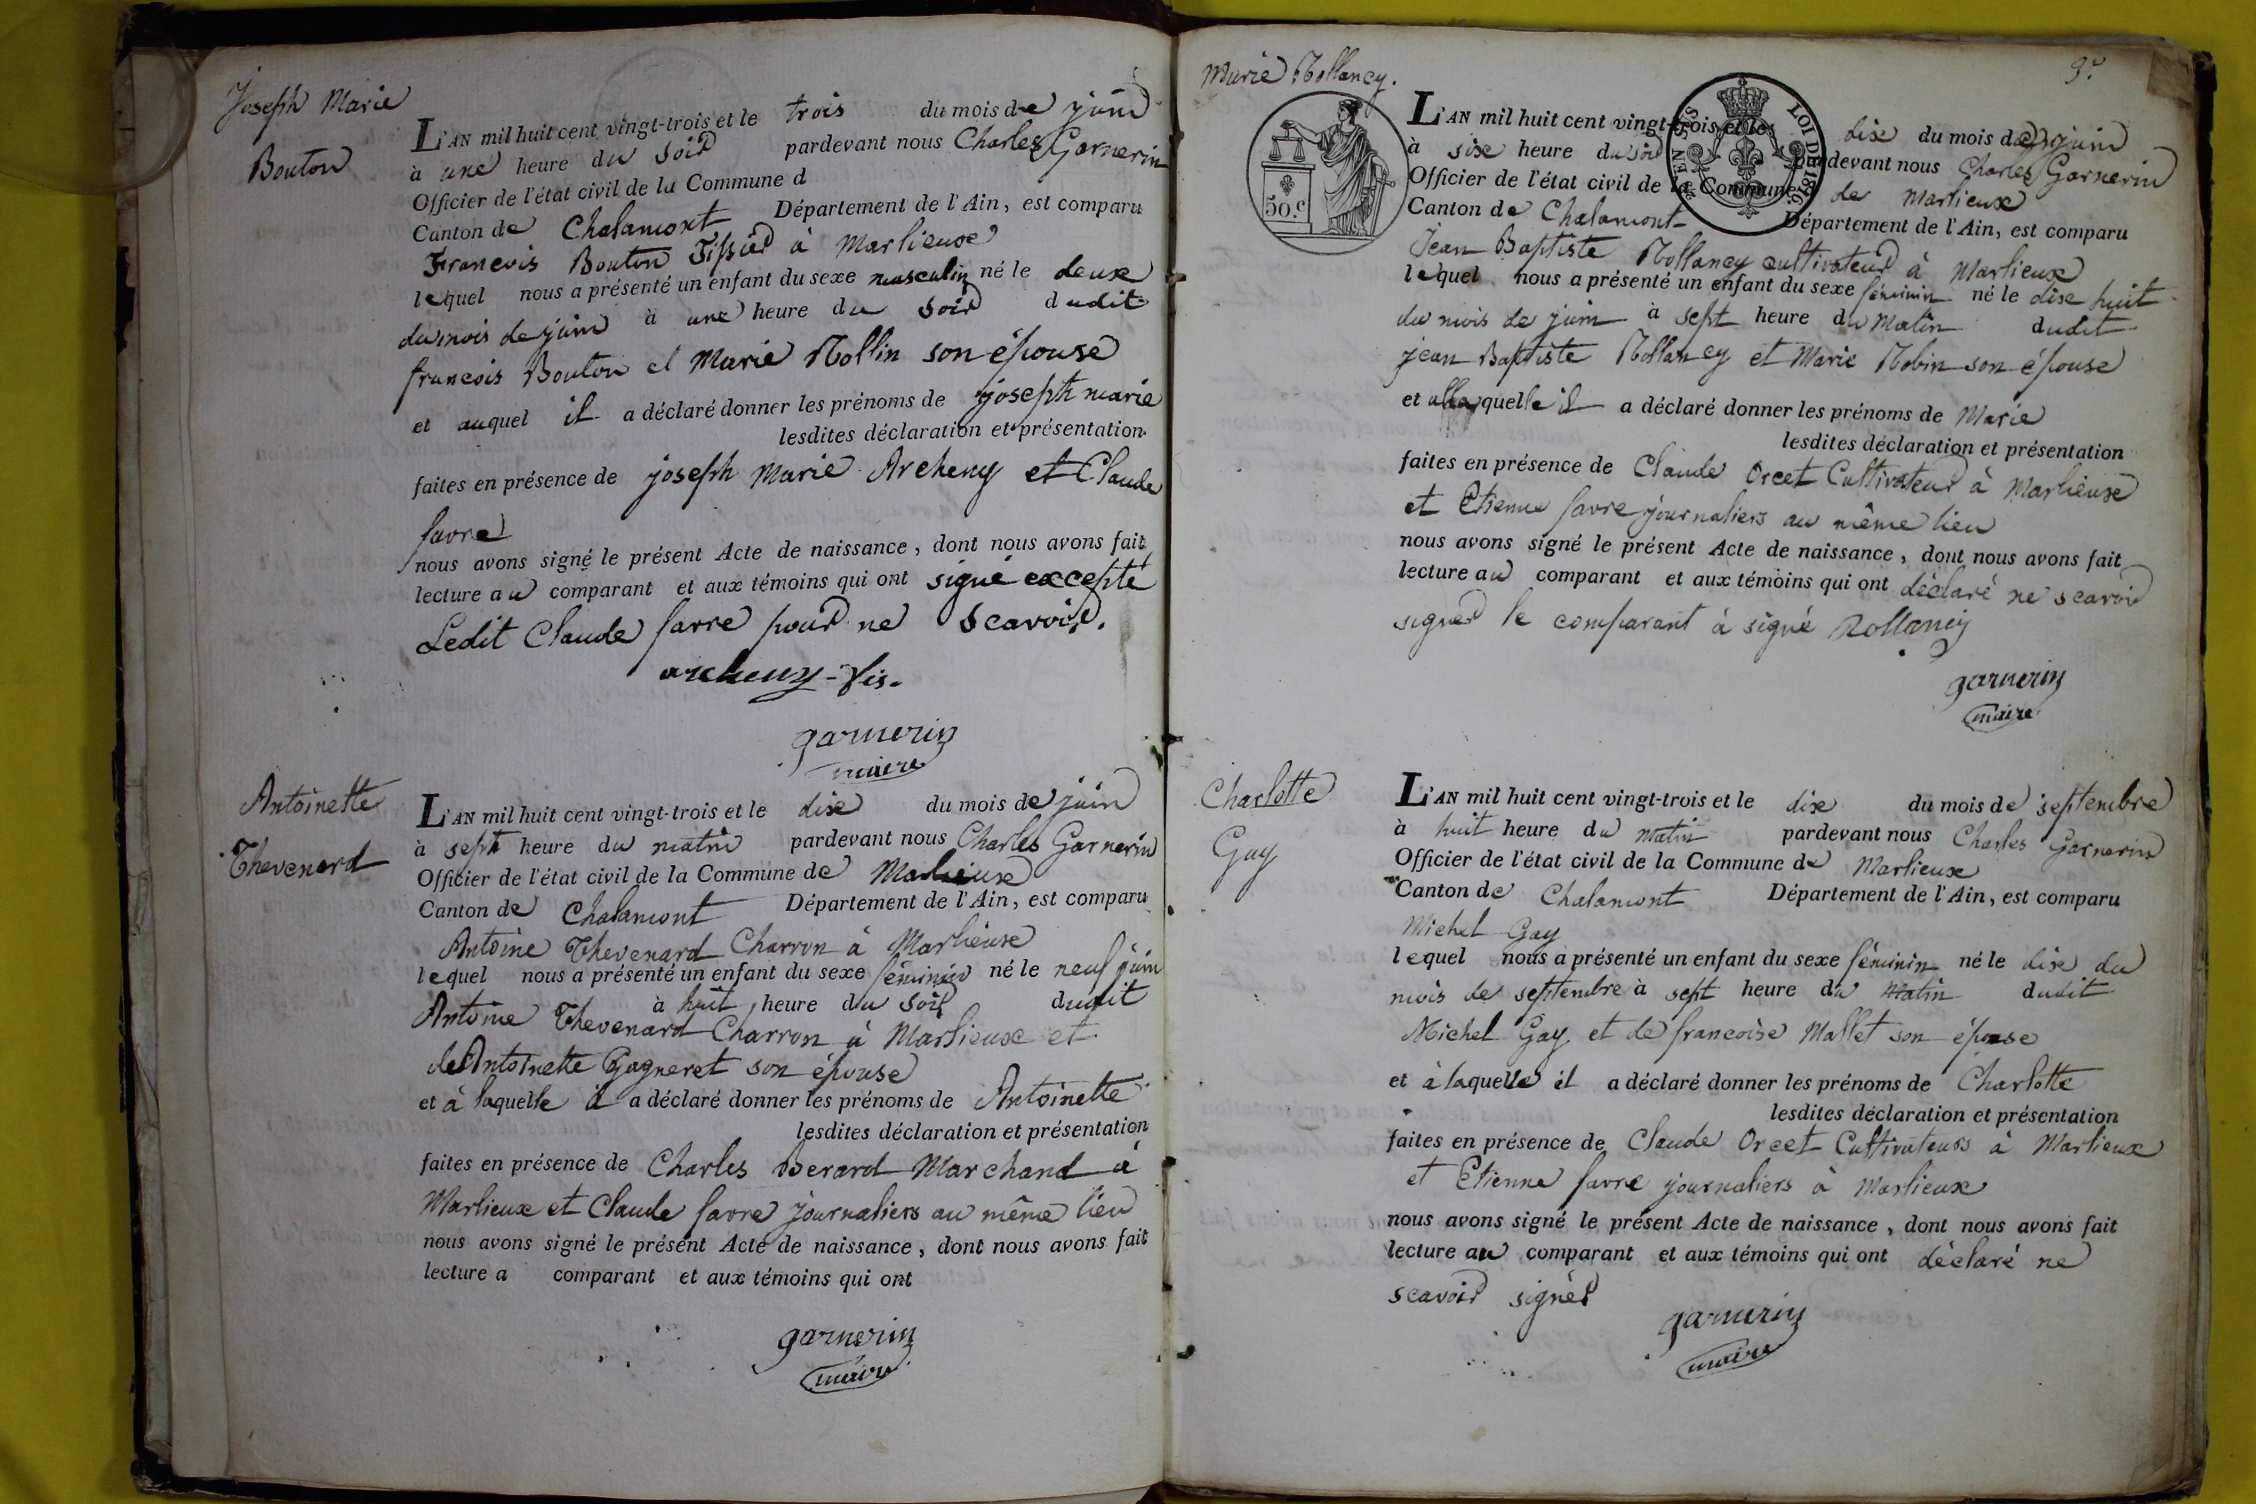 Joseph Marie
Bouton
L'AN mil huit cent vingt-trois et le trois du mois de juin
à une heure du soir pardevant nous Charles Garnerin
Officier de l'état civil de la Commune d
Canton de Chalamont Département de l'Ain, est comparu
Francois Bouton Tissier à Marlieux
lequel nous a présenté un enfant du sexe masculin né le deux
du mois de juin à une heure du soir dudit
francois Bouton et Marie Rollin son épouse
et auquel il a déclaré donner les prénoms de joseph marie
lesdites déclaration et présentation
faites en présence de joseph Marie Archeny et Claude
favre
nous avons signé le présent Acte de naissance, dont nous avons fait
lecture au comparant et aux témoins qui ont signé excepté
Ledit Claude favre pour ne scavoir.
archeny-fis.
garnerin
maire
Antoinette
Thevenard
L'AN mil huit cent vingt-trois et le dix du mois de juin
à sept heure du matin pardevant nous Charles Garnerin
Officier de l'état civil de la Commune de Marlieux
Canton de Chalamont Département de l'Ain, est comparu
Antoine Thevenard Charron à Marlieux
lequel nous a présenté un enfant du sexe féminin né le neuf juin
à huit heure du soir dudit
Antoine Thevenard Charron à Marlieux et
de Antoinette Gagneret son épouse
et à laquelle il a déclaré donner les prénoms de Antoinette
lesdites déclaration et présentation
faites en présence de Charles Berard Marchand à
Marlieux et Claude favre journaliers au même lieu
nous avons signé le présent Acte de naissance, dont nous avons fait
lecture a comparant et aux témoins qui ont
garnerin
maire
Marie Rollancy.
50.c
LOI DE 1816.
L'AN mil huit cent vingt-trois et le dix du mois de juin
à six heure du soir pardevant nous Charles Garnerin
Officier de l'état civil de la Commune de Marlieux
Canton de Chalamont Département de l'Ain, est comparu
Jean Baptiste Rollancy cultivateur à Marlieux
lequel nous a présenté un enfant du sexe féminin né le dix huit
du mois de juin à sept heure du Matin dudit
jean Baptiste Rollancy et Marie Robin son épouse
et a laquelle il a déclaré donner les prénoms de Marie
lesdites déclaration et présentation
faites en présence de Claude Orcet Cultivateur à Marlieux
et Etienne favre journaliers au même lieu
nous avons signé le présent Acte de naissance, dont nous avons fait
lecture au comparant et aux témoins qui ont déclaré ne scavoir
signer le comparant à signé Rollancy
garnerin
maire
Charlotte
Gay
L'AN mil huit cent vingt-trois et le dix du mois de septembre
à huit heure du matin pardevant nous Charles Garnerin
Officier de l'état civil de la Commune de Marlieux
Canton de Chalamont Département de l'Ain, est comparu
Michel Gay
lequel nous a présenté un enfant du sexe féminin né le dix du
mois de septembre à sept heure du Matin dudit
Michel Gay et de francoise Mallet son épouse
et à laquelle il a déclaré donner les prénoms de Charlotte
lesdites déclaration et présentation
faites en présence de Claude Orcet Cultivateurs à Marlieux
et Etienne favre journaliers à Marlieux
nous avons signé le présent Acte de naissance, dont nous avons fait
lecture au comparant et aux témoins qui ont déclaré ne
scavoir signer
garnerin
maire